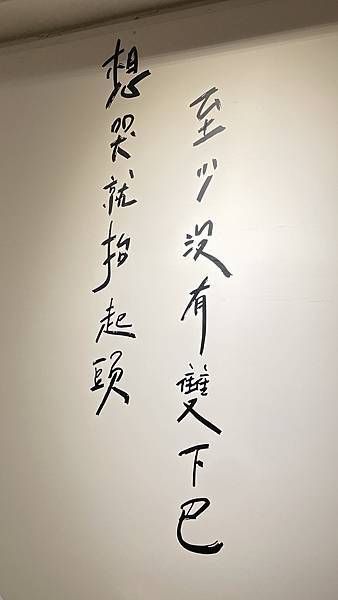 想哭就抬起頭
至少沒有雙下巴